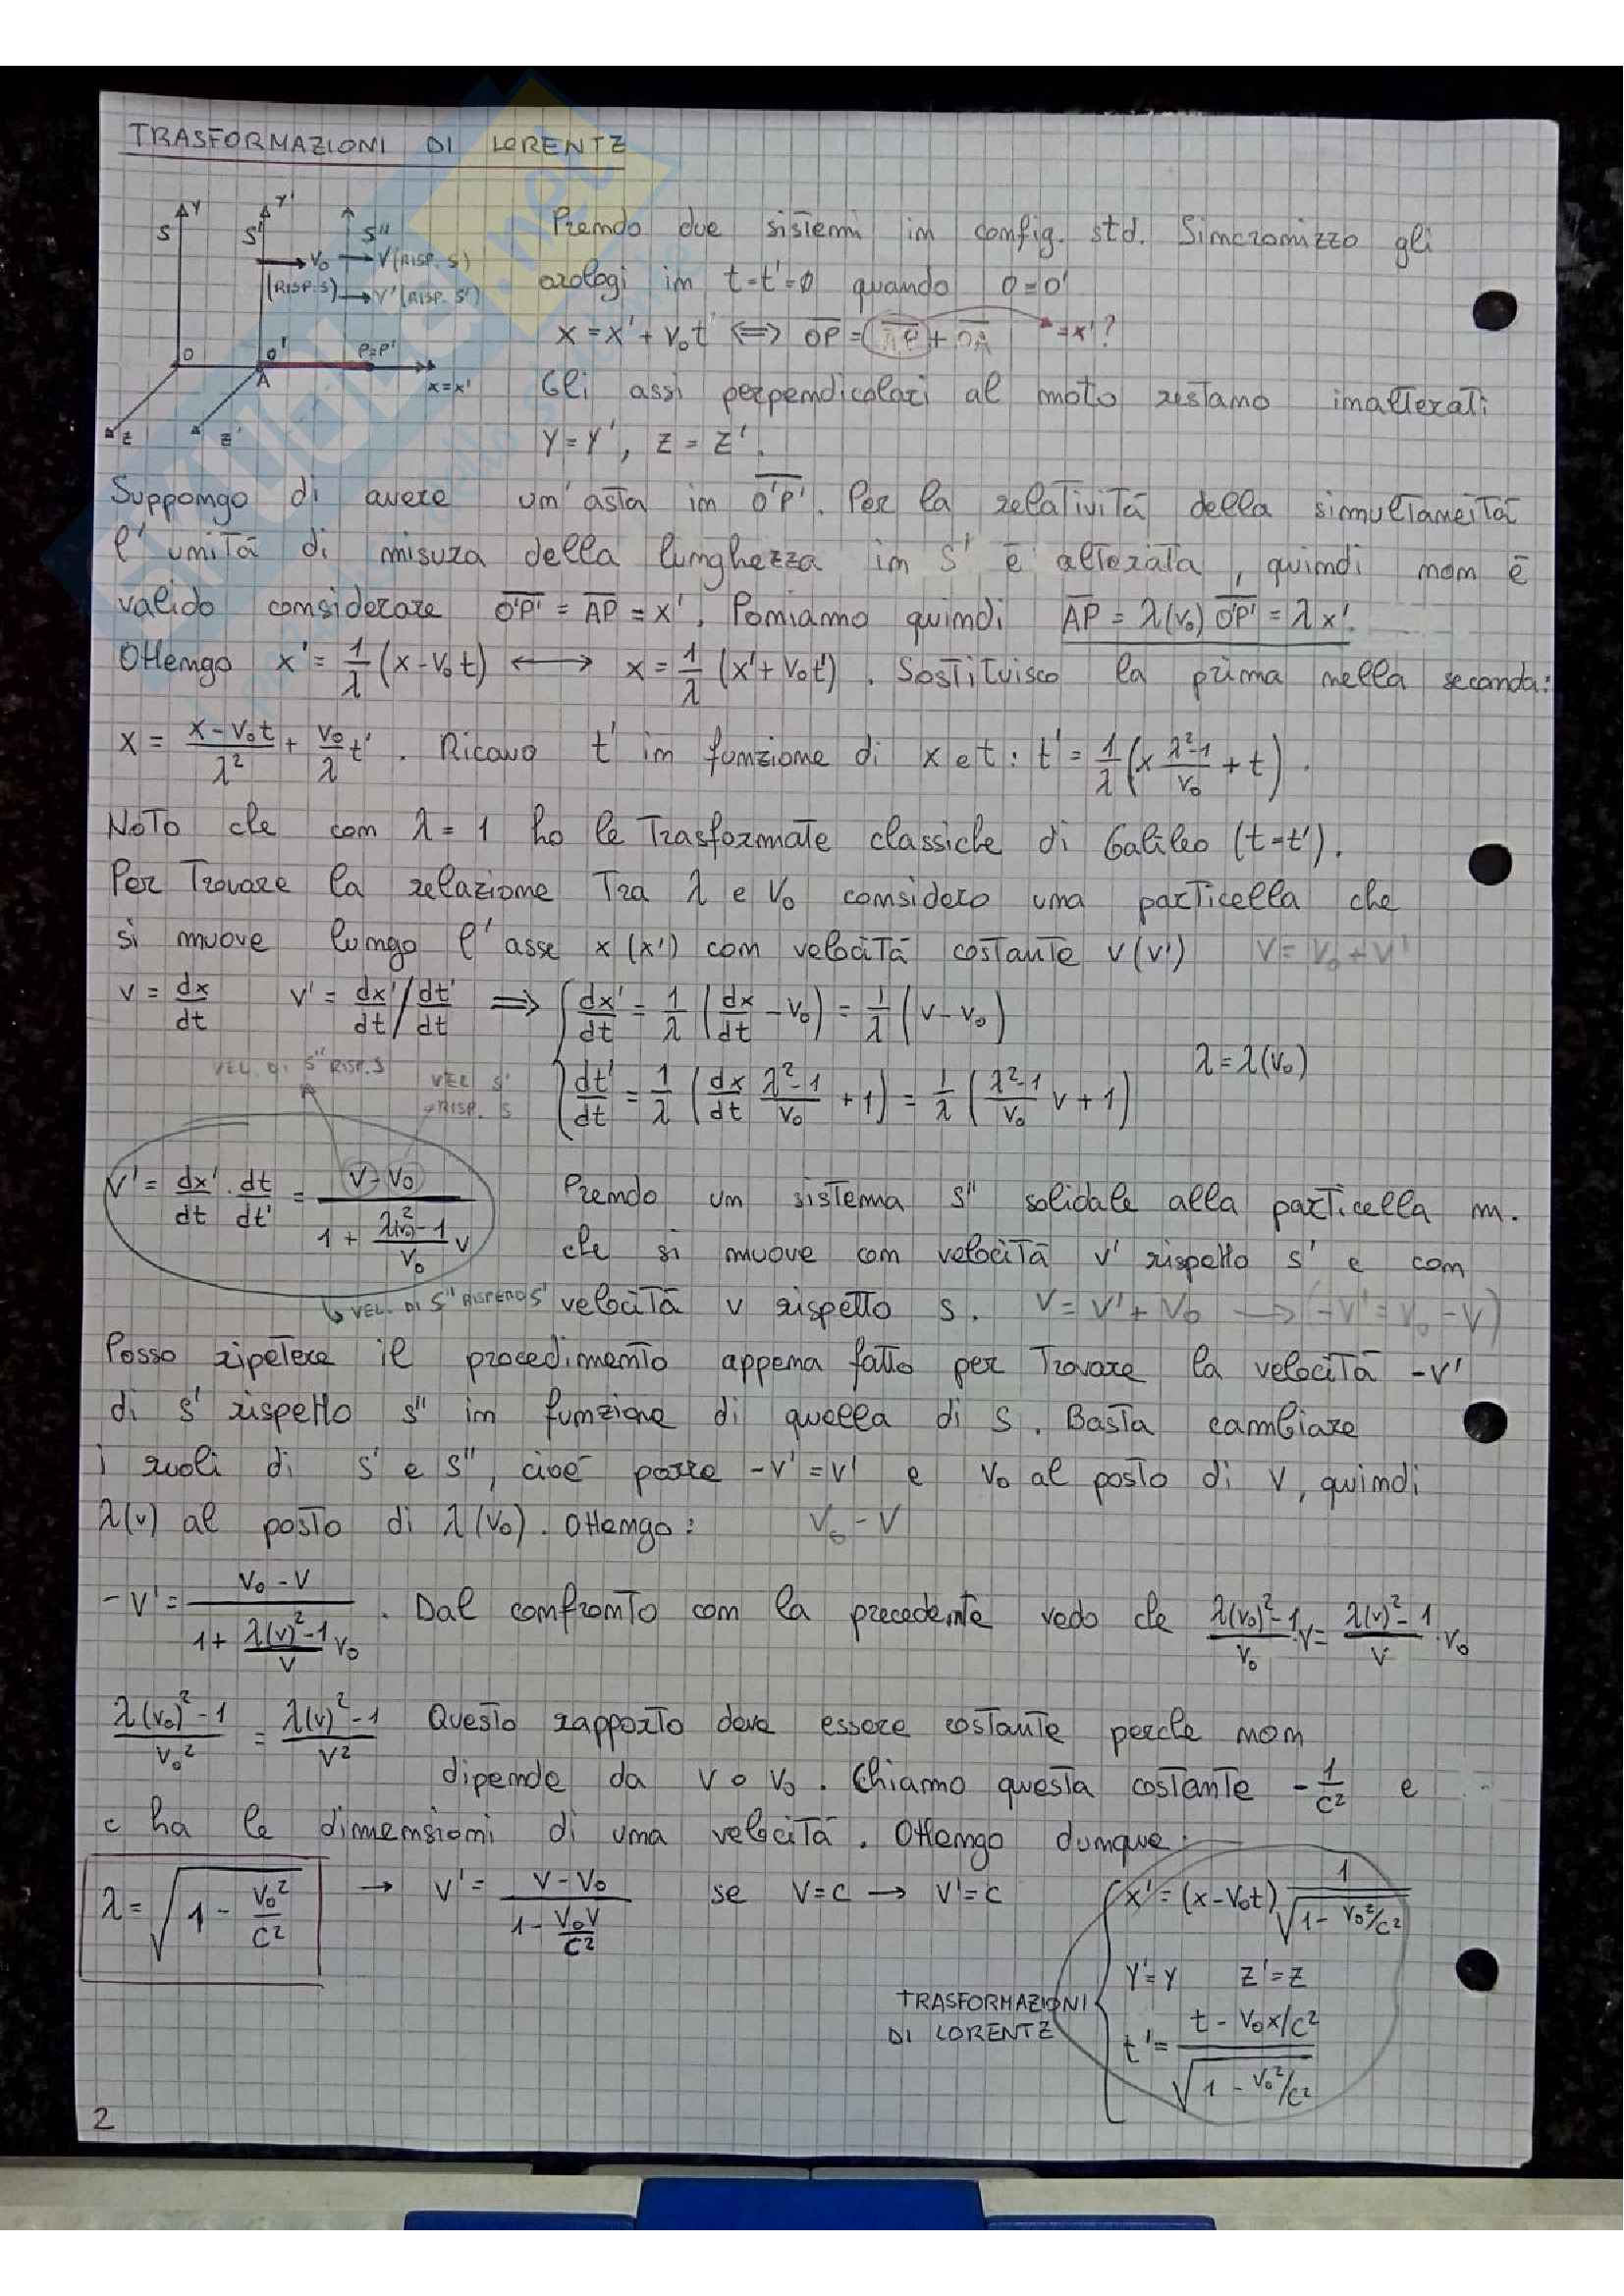 TRASFORMAZIONI DI LORENTZ
S Y S' Y' S"
V₀ → V (RISP. S)
(RISP. S) → V' (RISP. S')
O O' A P=P' x=x'
Z Z'
Prendo due sistemi in config. std. Sincronizzo gli
orologi in t=t'=0 quando O=O'
x = x' + V₀t ⟺ OP = AP + OA = x'?
Gli assi perpendicolari al moto restano inalterati
Y=Y', Z=Z'.
Suppongo di avere un'asta in O'P'. Per la relatività della simultaneità
l'unità di misura della lunghezza in S' è alterata, quindi non è
valido considerare O'P' = AP = x'. Poniamo quindi AP = λ(v₀) O'P' = λx'.
Ottengo x' = 1/λ (x-V₀t) ⟷ x = 1/λ (x'+V₀t'). Sostituisco la prima nella seconda:
x = (x-V₀t)/λ² + V₀/λ t'. Ricavo t' in funzione di x e t: t' = 1/λ (x (λ²-1)/V₀ + t).
Noto che con λ=1 ho le trasformate classiche di Galileo (t=t').
Per trovare la relazione tra λ e V₀ considero una particella che
si muove lungo l'asse x (x') con velocità costante v (v') V = V₀ + V'
v = dx/dt v' = dx'/dt / dt'/dt ⟹ { dx'/dt = 1/λ (dx/dt - V₀) = 1/λ (V-V₀)
λ = λ(V₀)
dt'/dt = 1/λ (dx/dt (λ²-1)/V₀ + 1) = 1/λ ((λ²-1)/V₀ V + 1)
VEL. DI S" RISP. S
VEL S' RISP. S
V' = dx'/dt · dt/dt' = (V-V₀)/(1 + (λ(V₀)²-1)/V₀ V)
Prendo un sistema S" solidale alla particella m.
che si muove con velocità v' rispetto S' e con
↳ VEL. DI S" RISPETTO S'
velocità v rispetto S. V = V' + V₀ → (-V' = V₀ - V)
Posso ripetere il procedimento appena fatto per trovare la velocità -V'
di S' rispetto S" in funzione di quella di S. Basta cambiare
i ruoli di S' e S", cioè porre -V'=V' e V₀ al posto di V, quindi
λ(v) al posto di λ(V₀). Ottengo: V₀ - V
-V' = (V₀-V)/(1 + (λ(v)²-1)/V V₀). Dal confronto con la precedente vedo che (λ(V₀)²-1)/V₀ ·V = (λ(v)²-1)/V ·V₀
(λ(V₀)²-1)/V₀² = (λ(v)²-1)/V² Questo rapporto deve essere costante perche non
dipende da V o V₀. Chiamo questa costante -1/C² e
c ha le dimensioni di una velocità. Ottengo dunque:
λ = √(1 - V₀²/C²) → V' = (V-V₀)/(1 - V₀V/C²) se V=C → V'=C
{ x' = (x-V₀t) 1/√(1-V₀²/C²)
Y'=Y Z'=Z
TRASFORMAZIONI
DI LORENTZ
t' = (t - V₀x/C²)/√(1 - V₀²/C²)
2